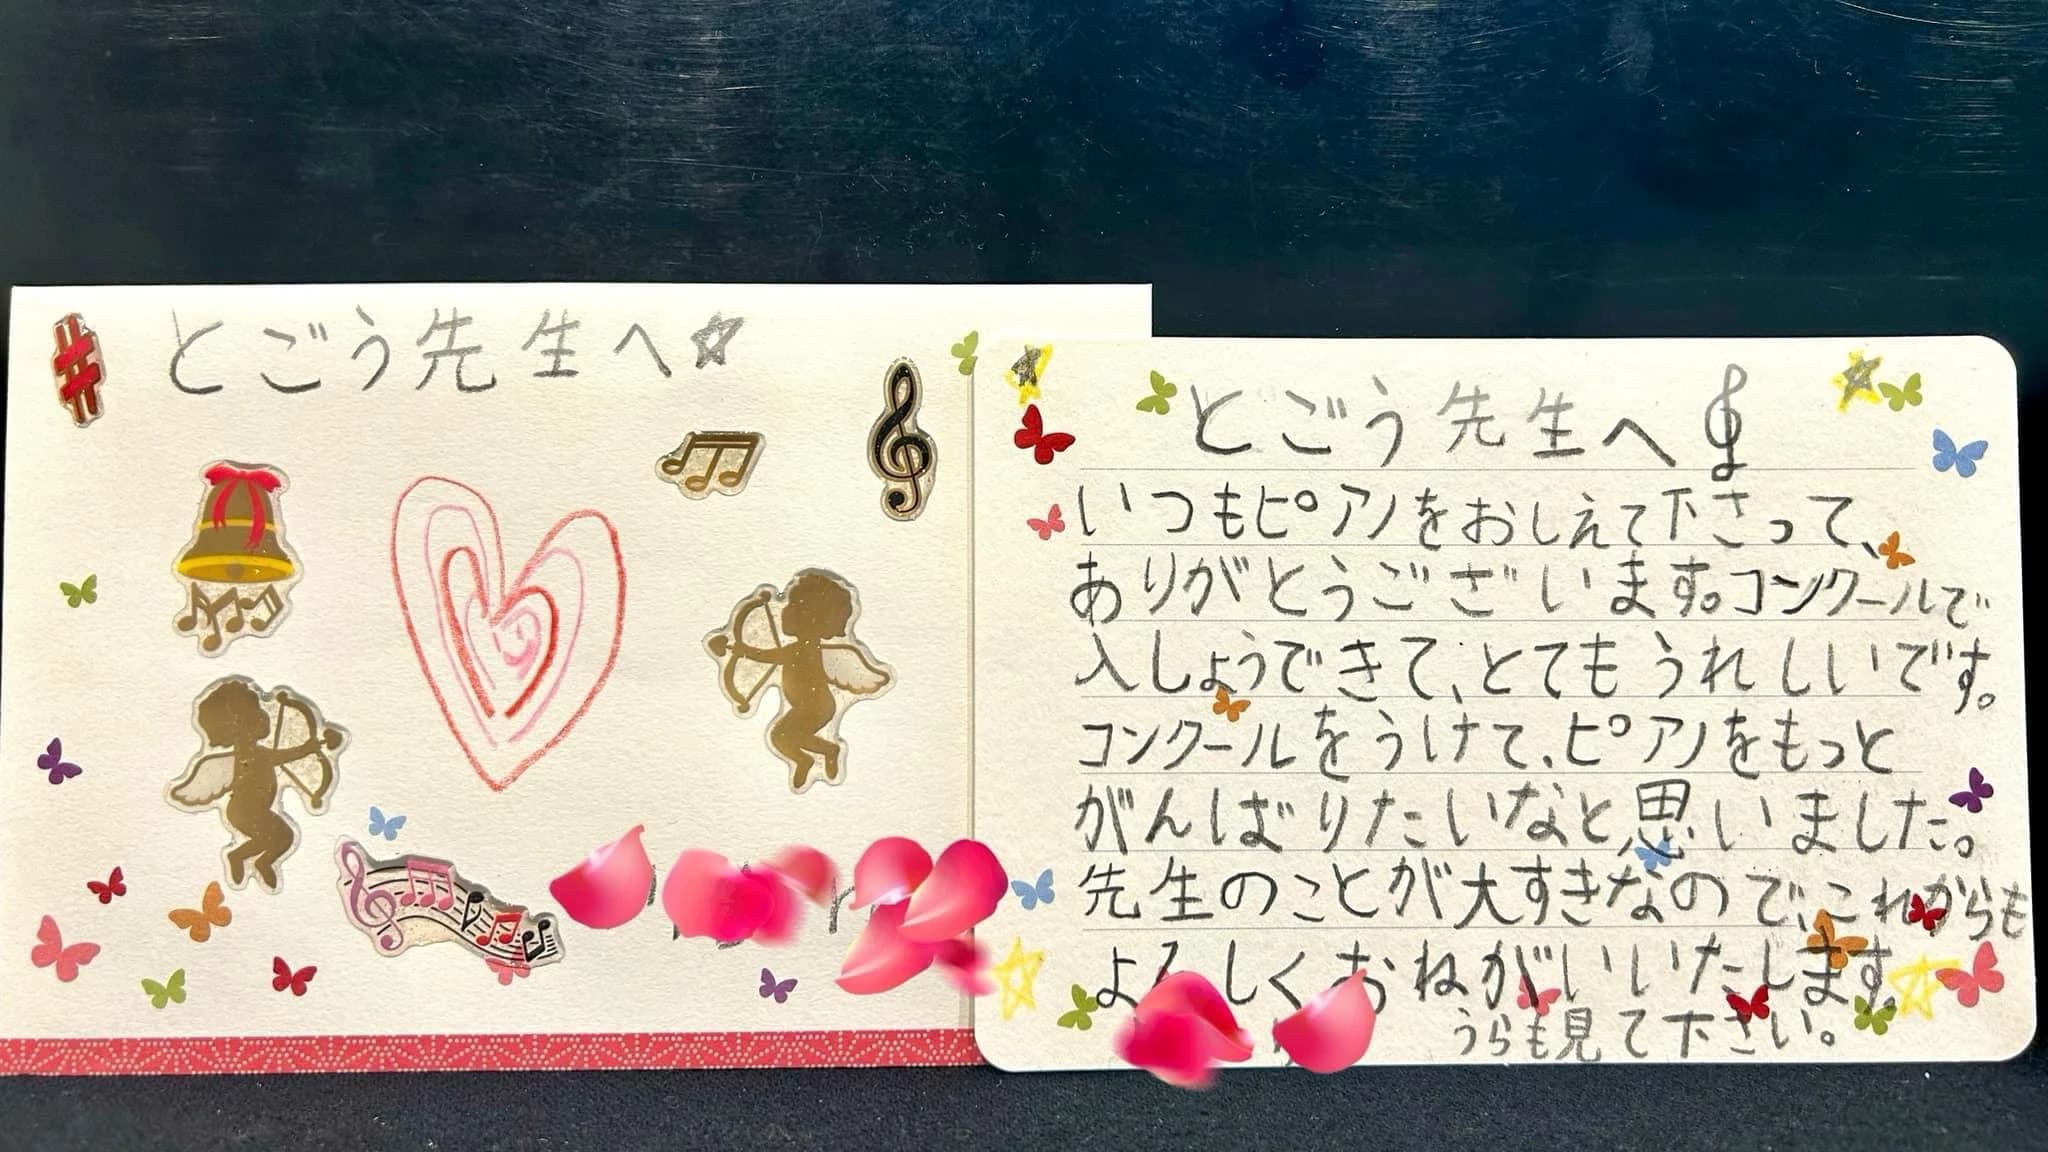 とごう先生へ☆
とごう先生へ
いつもピアノをおしえて下さって、
ありがとうございます。コンクールで
入しょうできて、とてもうれしいです。
コンクールをうけて、ピアノをもっと
がんばりたいなと思いました。
先生のことが大すきなので、これからも
よろしくおねがいいたします。
うらも見て下さい。